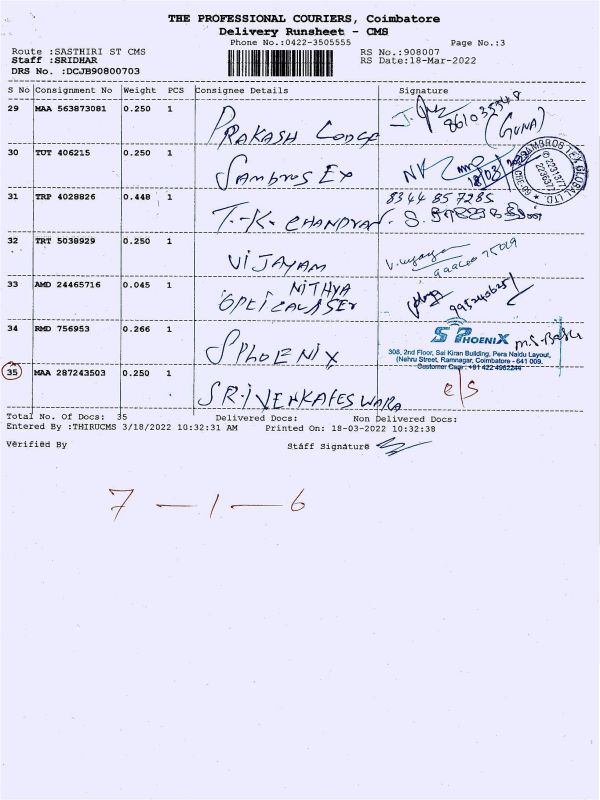 THE PROFESSIONAL COURIERS, Coimbatore
Delivery Runsheet - CMS
Phone No.:0422-3505555 Page No.:3
Route :SASTHIRI ST CMS RS No.:908007
Staff :SRIDHAR RS Date:18-Mar-2022
DRS No. :DCJB90800703
S No Consignment No Weight PCS Consignee Details Signature
29 MAA 563873081 0.250 1 PRAKASH LODGE (GUNA)
30 TUT 406215 0.250 1 SAmbros Ex
31 TRP 4028826 0.448 1 T.K. CHANDRAN 8344857285
32 TRT 5038929 0.250 1 VIJAYAM
33 AMD 24465716 0.045 1 NITHYA
34 RMD 756953 0.266 1 SPhOENIX S PHOENIX
305, 2nd Floor, Sai Kiran Building, Pera Naidu Layout,
(Nehru Street, Ramnagar, Coimbatore - 641 009.
Customer Care : +91 422 4982244
35 MAA 287243503 0.250 1 SRIVENKATESWARA c/s
Total No. Of Docs: 35 Delivered Docs: Non Delivered Docs:
Entered By :THIRUCMS 3/18/2022 10:32:31 AM Printed On: 18-03-2022 10:32:38
Verified By Staff Signature
7 — 1 — 6